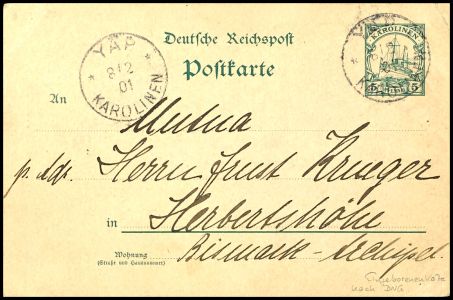 YAP
8/2
01
KAROLINEN
Deutsche Reichspost
Postkarte
KAROLINEN
5 5
An
Mutua
p. Adr. Herrn Ernst Krueger
in Herbertshöhe
Bismarck-Archipel.
Wohnung
(Straße und Hausnummer)
Eingeborenenkarte
nach DNG